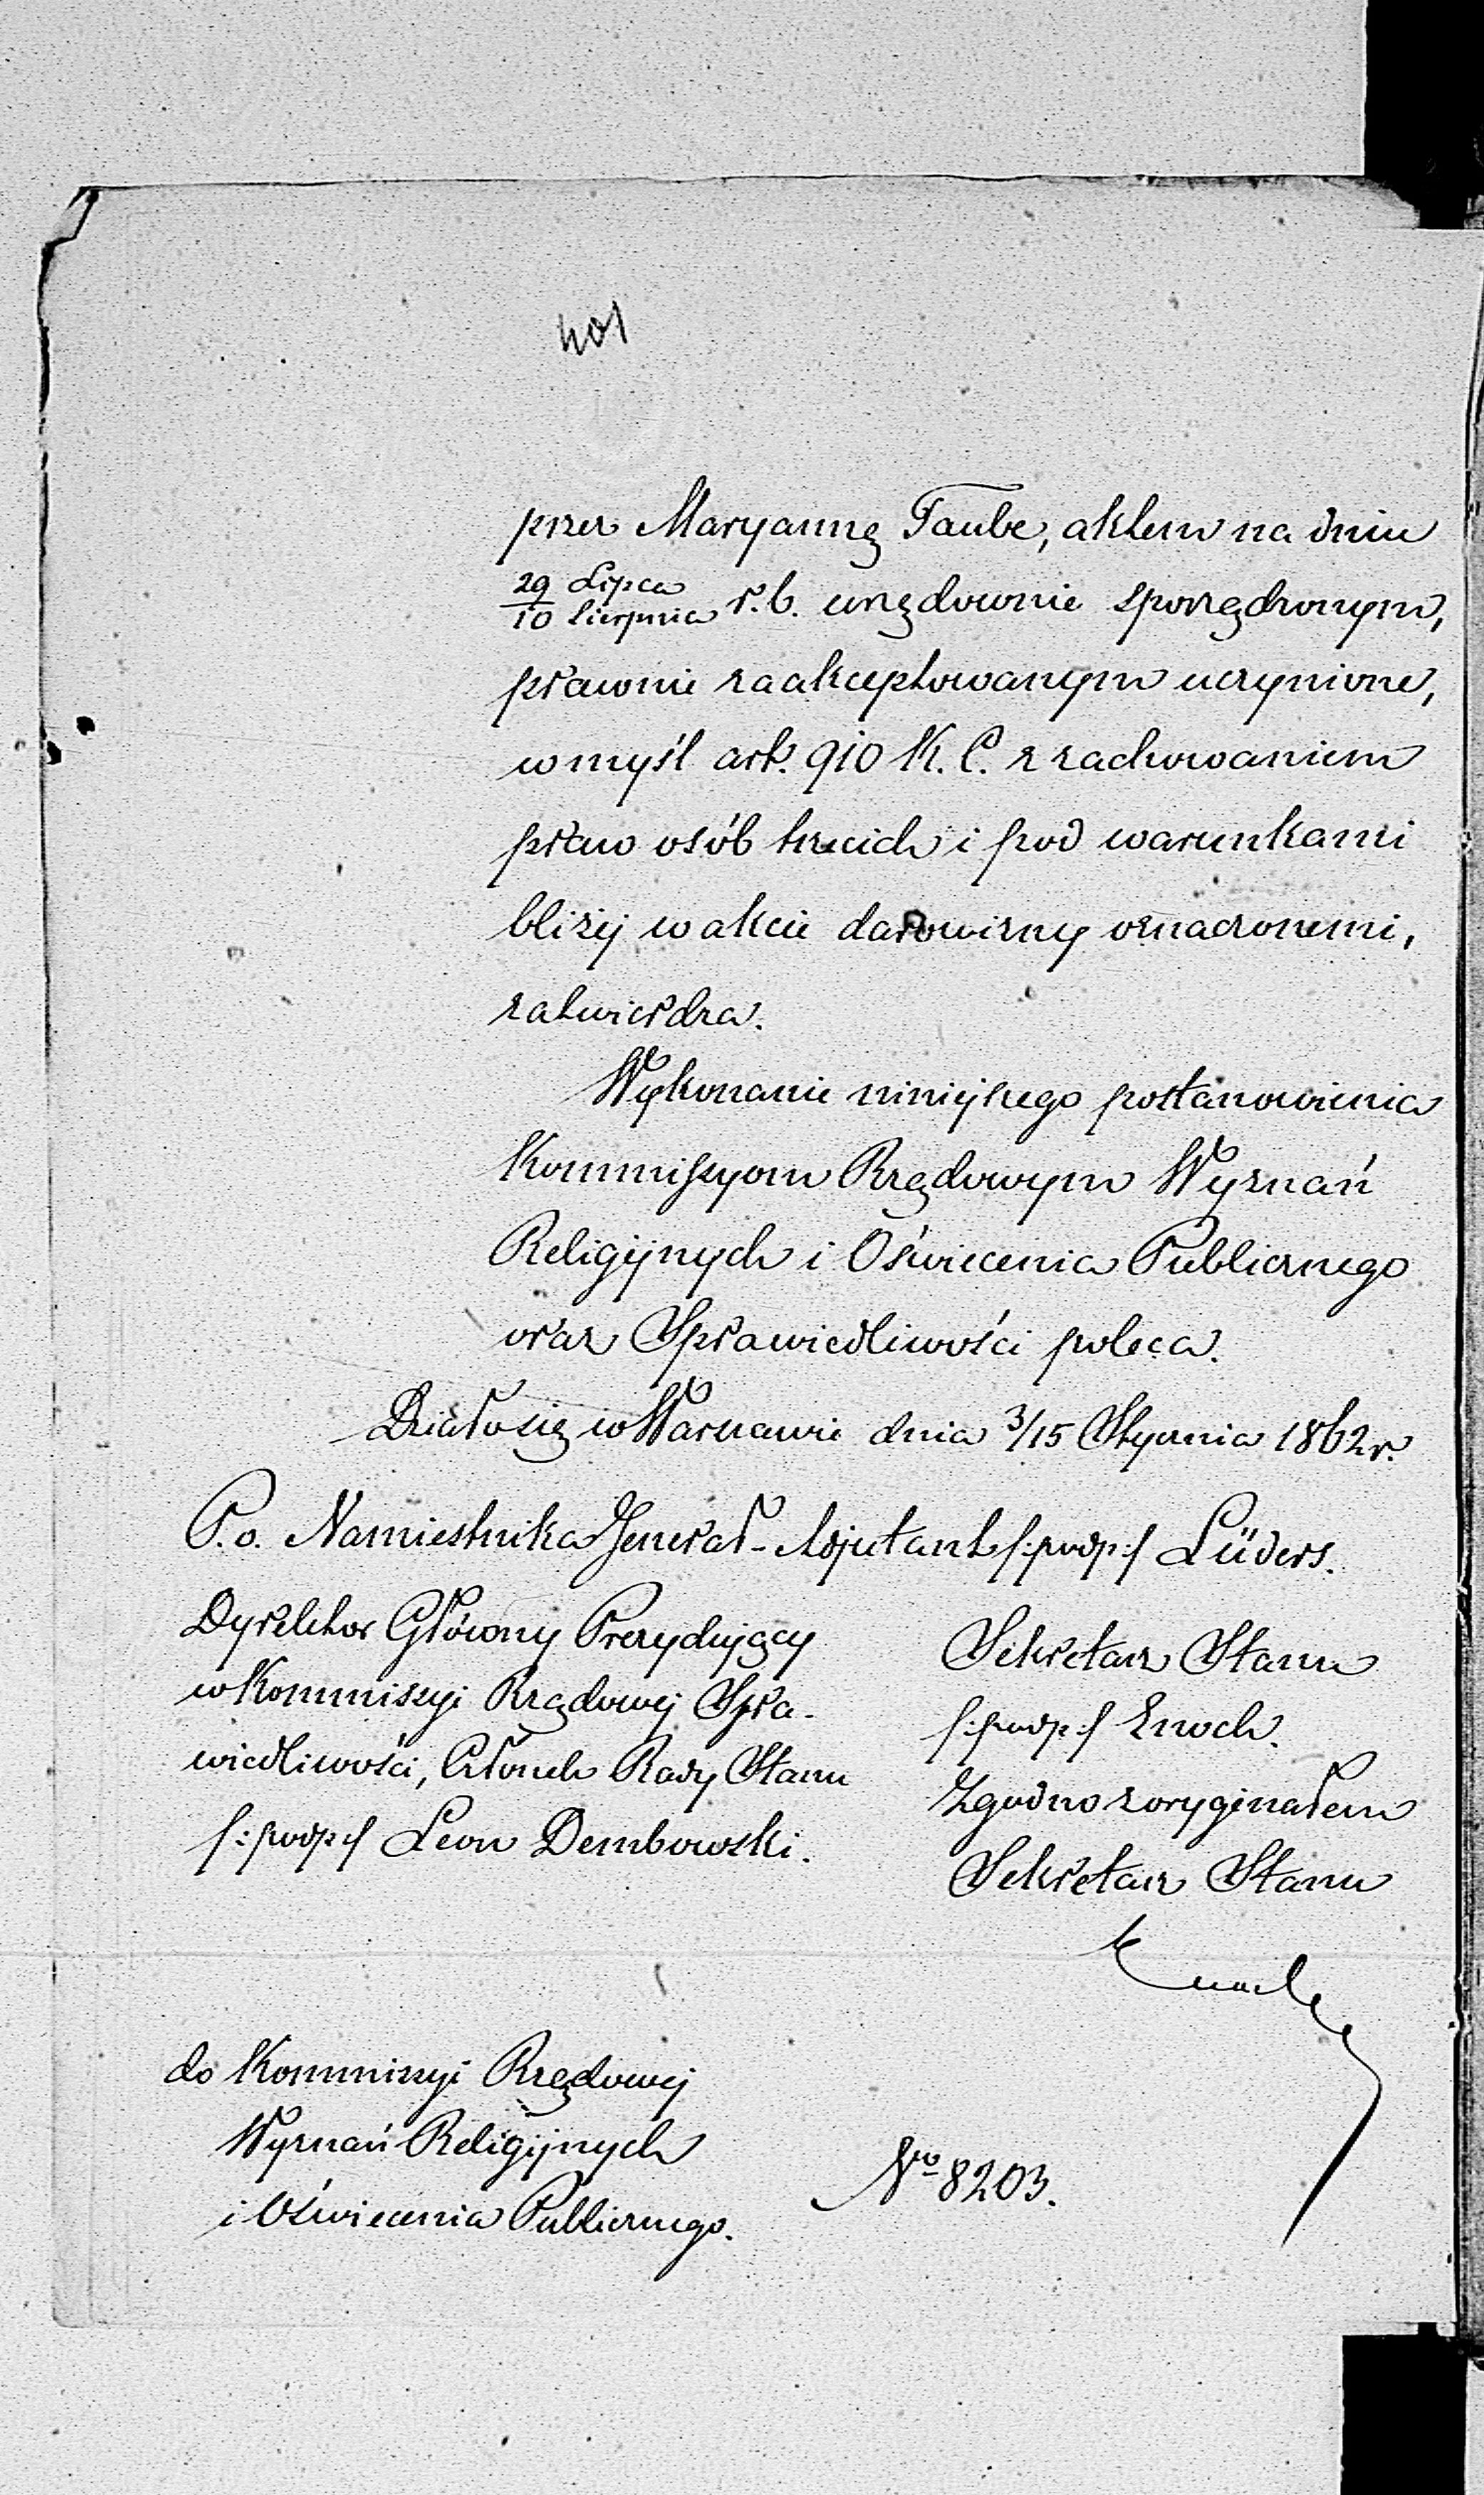 401
przez Maryannę Taube, aktem na dniu
29 Lipca
10 Sierpnia r. b. urzędownie sporządzonym,
prawnie zaakceptowanym uczynione,
w myśl art. 910 K. C. z zachowaniem
praw osób trzecich i pod warunkami
bliżej w akcie darowizny oznaczonemi,
zatwierdza.
Wykonanie niniejszego postanowienia
Kommissyom Rządowym Wyznań
Religijnych i Oświecenia Publicznego
oraz Sprawiedliwości poleca.
Działo się w Warszawie dnia 3/15 Stycznia 1862 r.
P. o. Namiestnika Jenerał-Adjutant /:podp:/ Lüders.
Dyrektor Główny Prezydujący
w Kommissyi Rządowej Spra-
wiedliwości, Członek Rady Stanu
/:podp:/ Leon Dembowski.
Sekretarz Stanu
/:podp:/ Enoch.
Zgodno z oryginałem
Sekretarz Stanu
Enoch
do Kommissyi Rządowej
Wyznań Religijnych
i Oświecenia Publicznego.
No 8203.